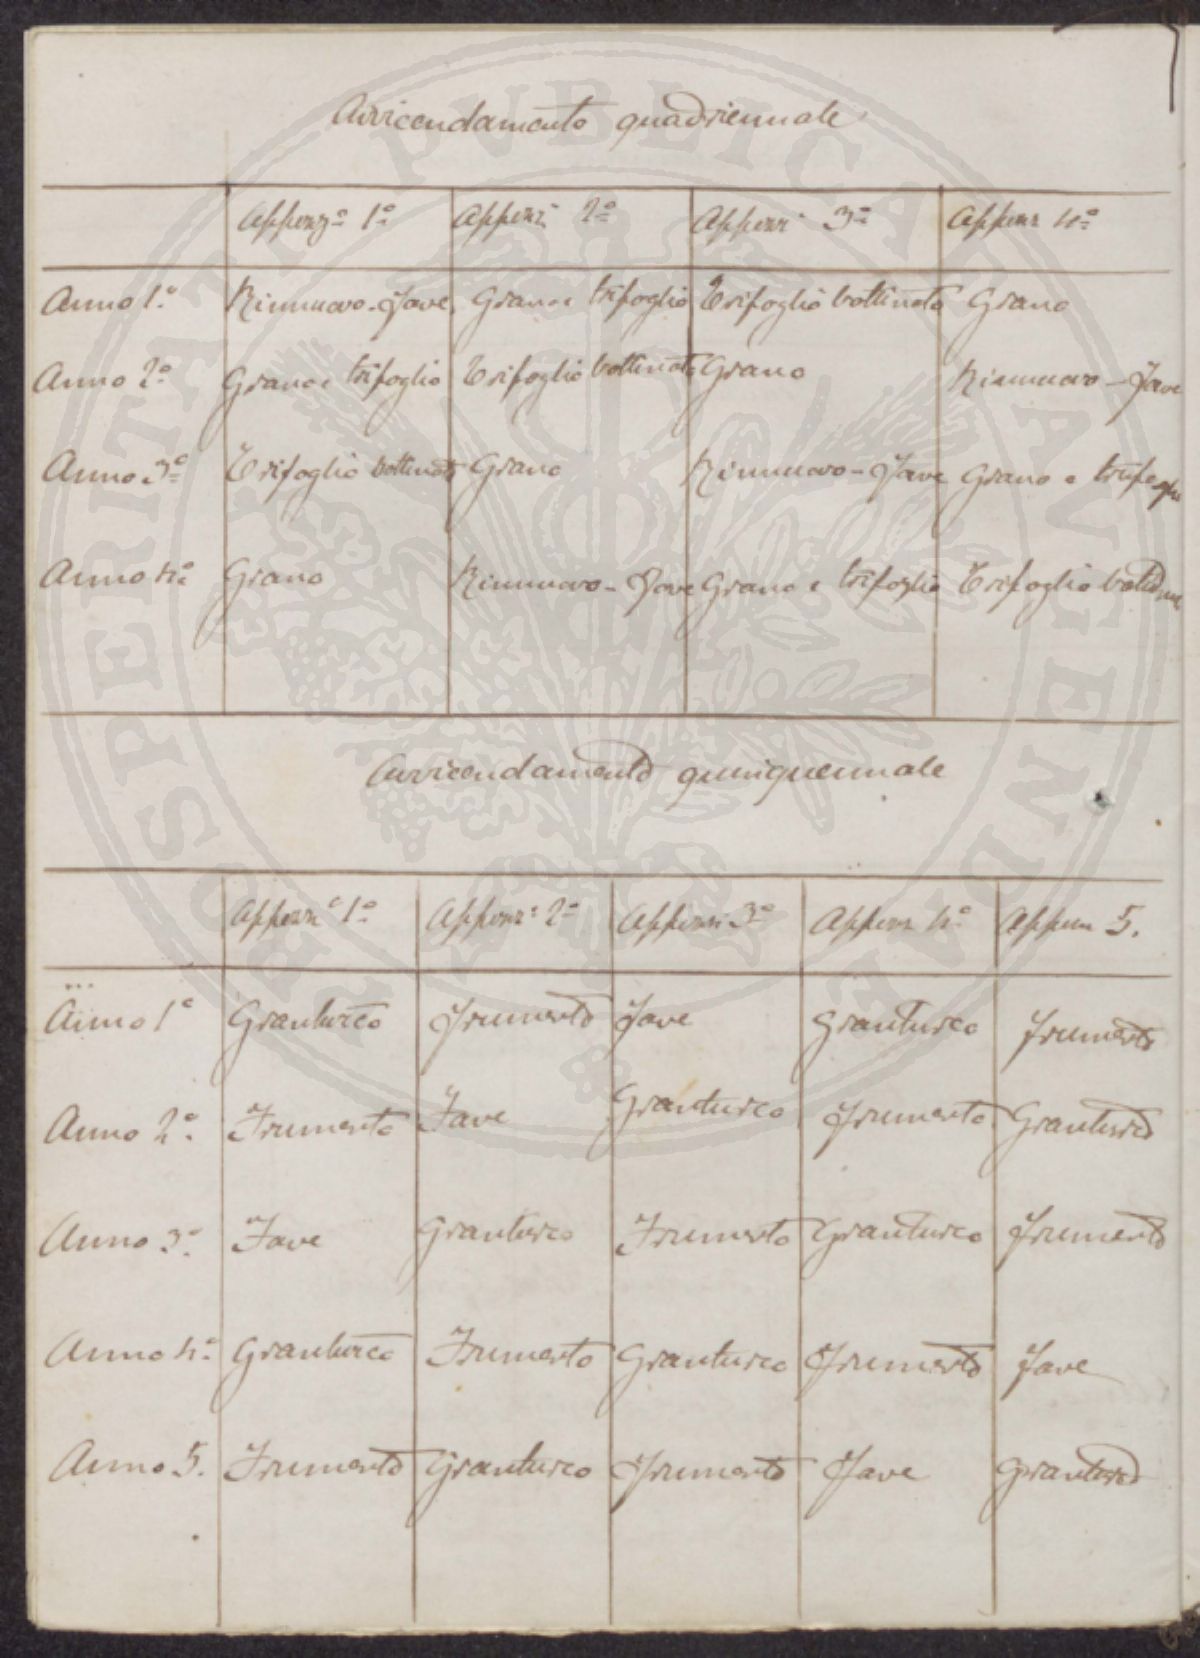 Avvicendamento quadriennale
Appezz.o 1.o Appezz. 2.o Appezz. 3.o Appezz. 4.o
Anno 1.o Rinnuovo - Fave Grano e trifoglio Trifoglio bottinato Grano
Anno 2.o Grano e trifoglio Trifoglio bottinato Grano Rinnuovo - Fave
Anno 3.o Trifoglio bottinato Grano Rinnuovo - Fave Grano e trifoglio
Anno 4.o Grano Rinnuovo - Fave Grano e trifoglio Trifoglio bottinato
Avvicendamento quinquennale
Appezz.o 1.o Appezz. 2.o Appezz. 3.o Appezz. 4.o Appezz. 5.
Anno 1.o Granturco Frumento Fave Granturco Frumento
Anno 2.o Frumento Fave Granturco Frumento Granturco
Anno 3.o Fave Granturco Frumento Granturco Frumento
Anno 4.o Granturco Frumento Granturco Frumento Fave
Anno 5. Frumento Granturco Frumento Fave Granturco
PROSPERITATI PVBLICAE AVGENDAE